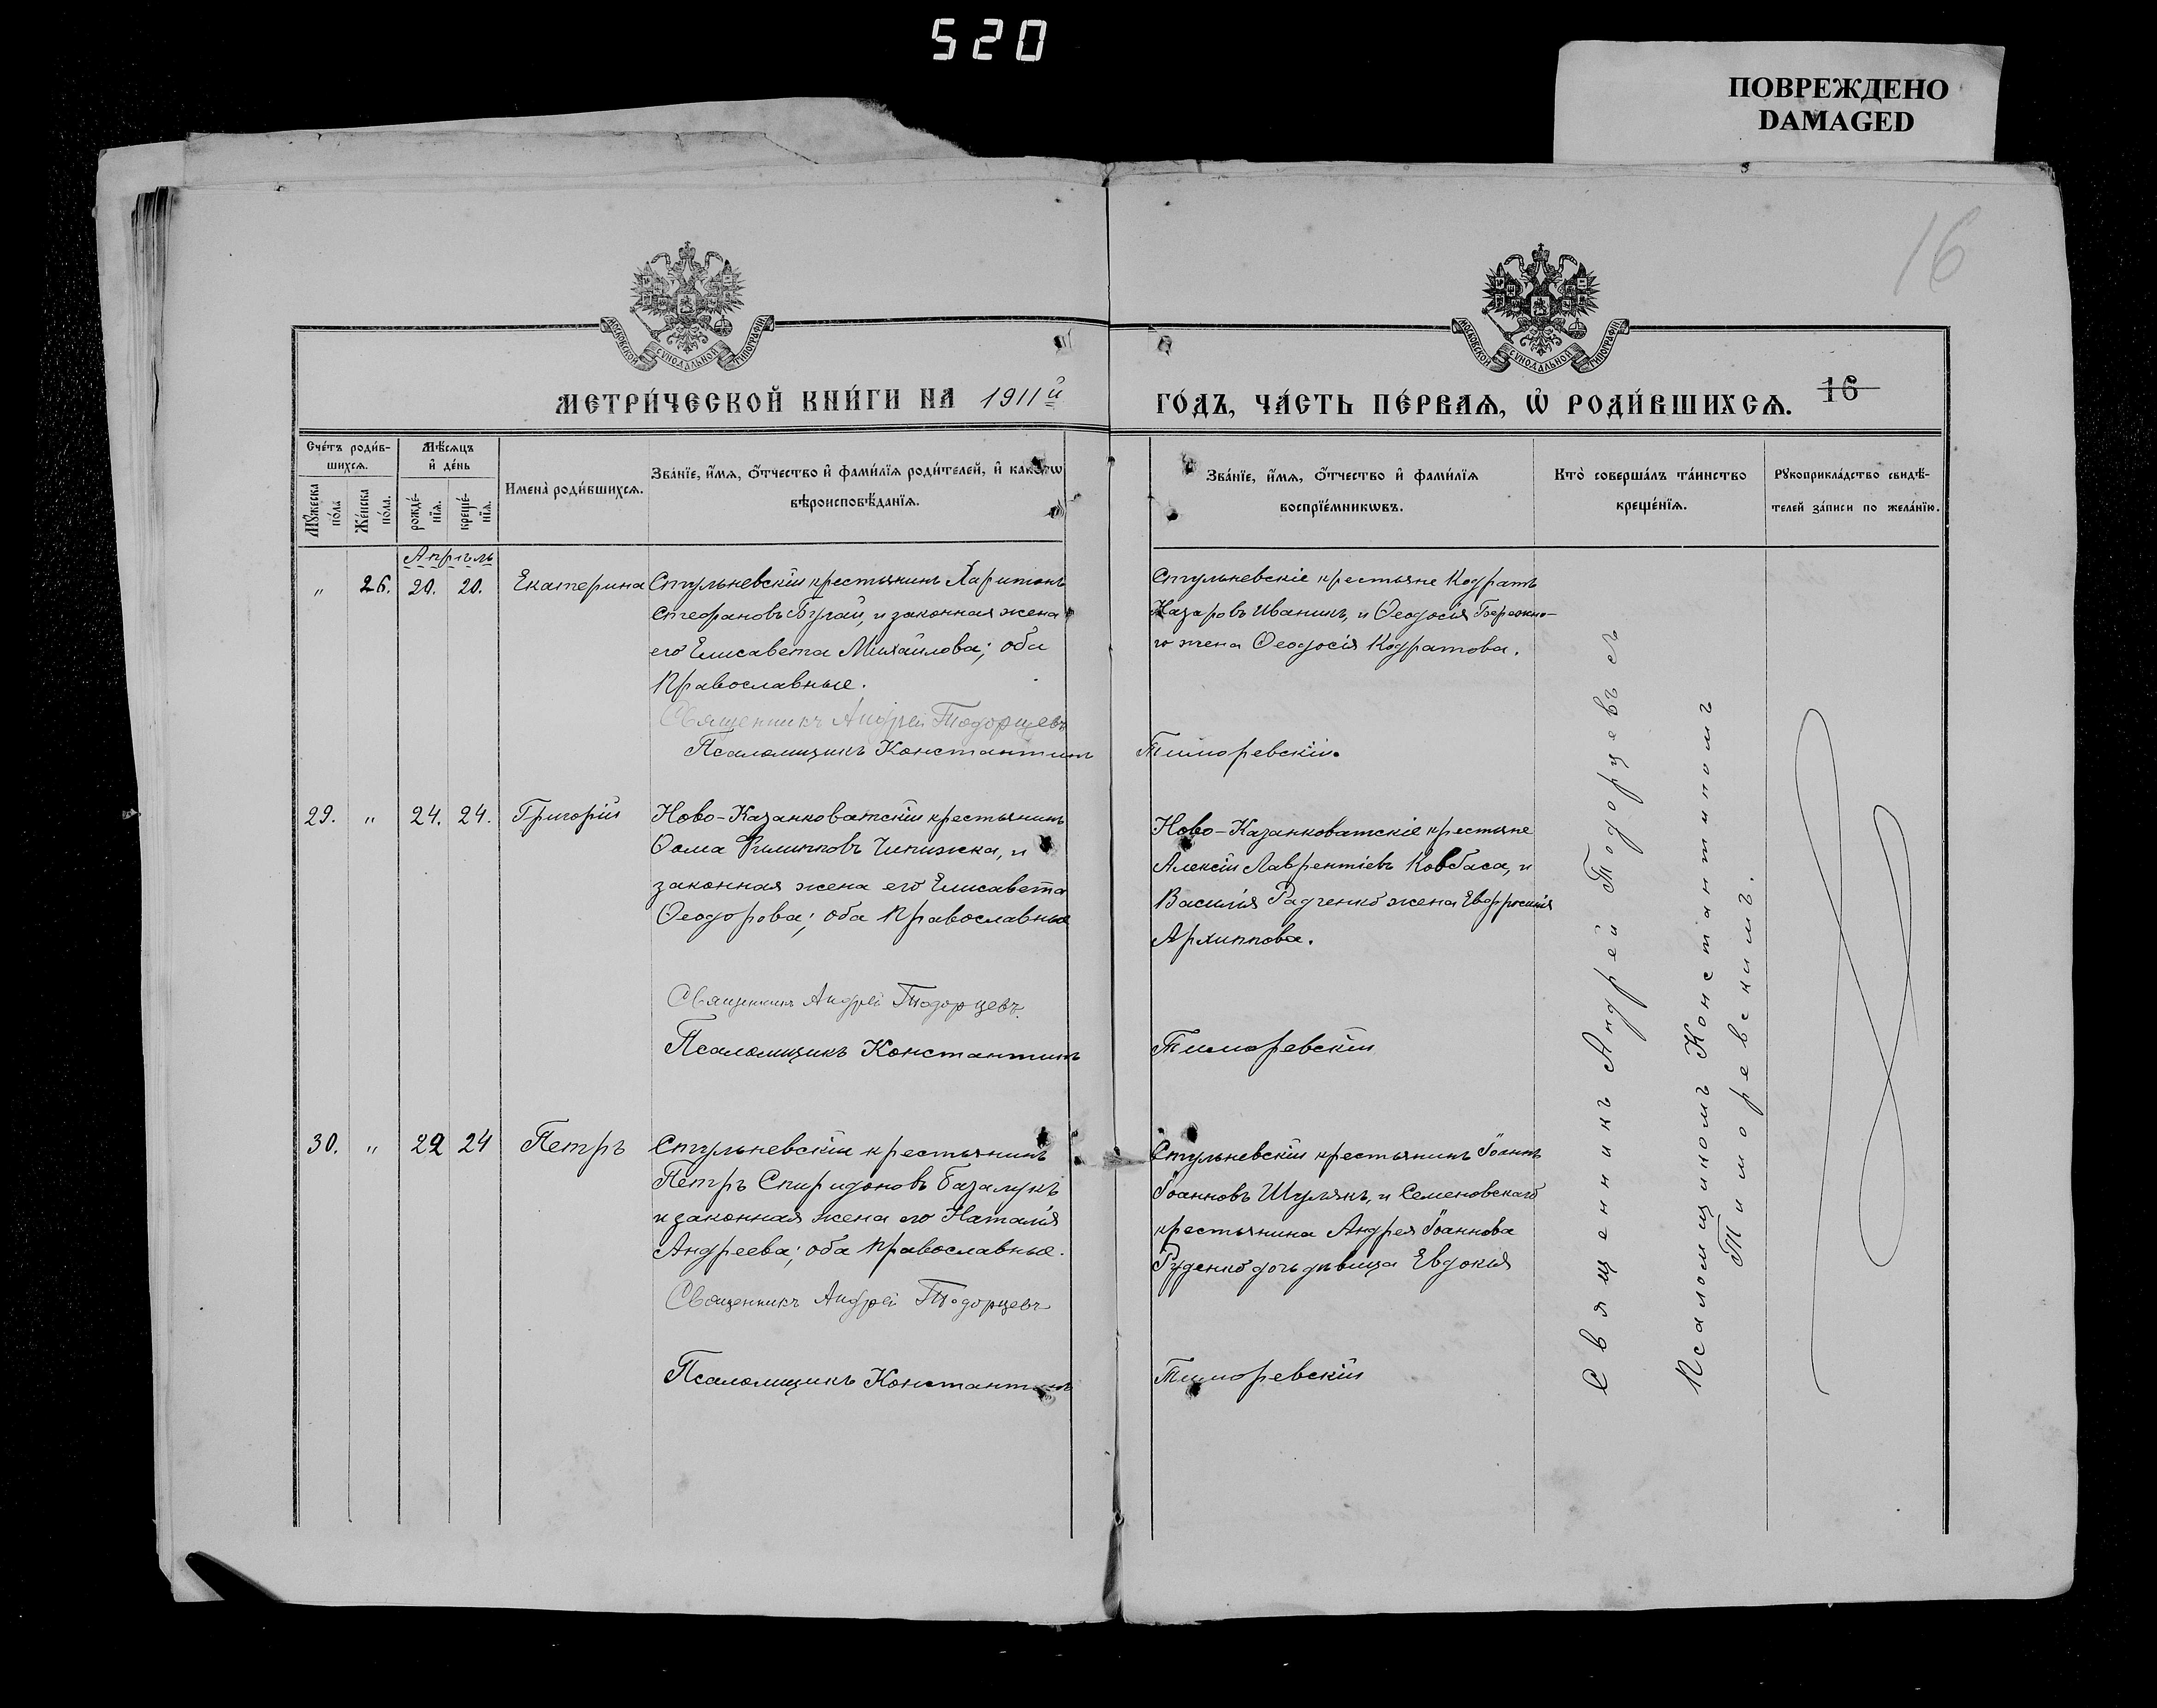 520
ПОВРЕЖДЕНО
DAMAGED
16
МОСКОВСКОЙ СѴНОДАЛЬНОЙ ТИПОГРАФІИ
МОСКОВСКОЙ СѴНОДАЛЬНОЙ ТИПОГРАФІИ
МЕТРИ́ЧЕСКОЙ КНИ́ГИ НА 1911й
ГО́ДЪ, ЧА́СТЬ ПЕ́РВАѦ, Ѡ҆ РОДИ́ВШИХСѦ. 16
Сче́тъ роди́в-
шихсѧ.
Мꙋ́жеска по́ла
Же́нска по́ла.
Мѣ́сѧцъ
и҆ де́нь
рожде́-
нїѧ.
креще́-
нїѧ.
Имена̀ роди́вшихсѧ.
Зва́нїе, и҆́мѧ, ѻ҆́тчество и҆ фами́лїѧ роди́телей, и҆ како́гѡ
вѣроисповѣ́данїѧ.
Зва́нїе, и҆́мѧ, ѻ҆́тчество и҆ фами́лїѧ
воспрїе́мникѡвъ.
Кто̀ соверша́лъ та́инство
креще́нїѧ.
Рꙋкоприкла́дство свидѣ́-
телей за́писи по жела́нїю.
Апрѣль
" 26. 20. 20. Екатерина
Стульневскій крестьянинъ Харитонъ
Стефановъ Бугай, и законная жена
его Елисавета Михайлова; оба
Православные.
Священникъ Андрей Тодорцевъ
Псаломщикъ Константинъ
Стульневскіе крестьяне Кодратъ
Назаровъ Иваникъ, и Ѳеодосія Бережно-
го жена Ѳеодосія Кодратова.
Тиморевскій.
29. " 24. 24. Григорій
Ново-Казанковатскій крестьянинъ
Ѳома Филипповъ Чепижка, и
законная жена его Елисавета
Ѳеодорова; оба Православные
Священникъ Андрей Тодорцевъ.
Псаломщикъ Константинъ
Ново-Казанковатскіе крестьяне
Алексій Лаврентіевъ Ковбаса, и
Василія Радченко жена Евфросинія
Архиппова.
Тиморевскій
30. " 22 24 Петръ
Стульневскій крестьянинъ
Петръ Спиридоновъ Базалукъ
и законная жена его Наталія
Андреева; оба Православные.
Священникъ Андрей Тодорцевъ
Псаломщикъ Константинъ
Стульневскій крестьянинъ Іоаннъ
Іоанновъ Шулякъ, и Семеновскаго
крестьянина Андрея Іоаннова
Руденко дочь дѣвица Евдокія
Тиморевскій
Священникъ Андрей Тодорцевъ съ
Псаломщикомъ Константиномъ
Тиморевскимъ.